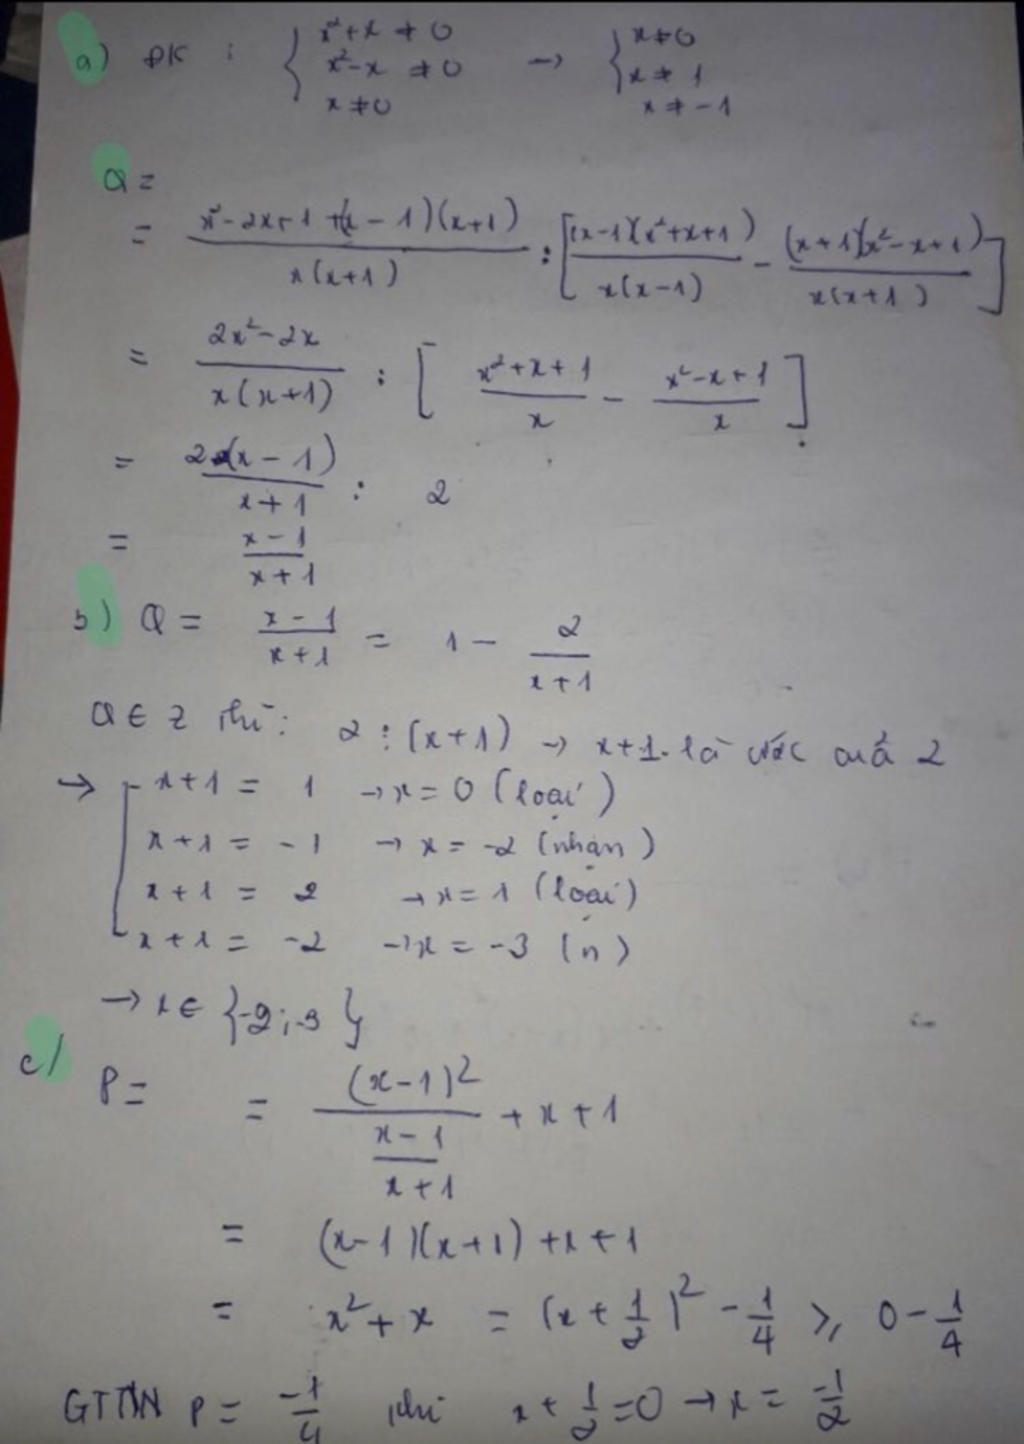 a) ĐK : { x²+x ≠ 0 ; x²-x ≠ 0 ; x≠0 → { x≠0 ; x≠ 1 ; x≠-1
Q =
= \frac{x²-2x+1+(x-1)(x+1)}{x(x+1)} : [\frac{(x-1)(x²+x+1)}{x(x-1)} - \frac{(x+1)(x²-x+1)}{x(x+1)}]
= \frac{2x²-2x}{x(x+1)} : [\frac{x²+x+1}{x} - \frac{x²-x+1}{x}]
= \frac{2(x-1)}{x+1} : 2
= \frac{x-1}{x+1}
b) Q = \frac{x-1}{x+1} = 1 - \frac{2}{x+1}
Q ∈ Z thì: 2 ⋮ (x+1) → x+1 là ước của 2
→ [ x+1 = 1 → x = 0 (loại)
x+1 = -1 → x = -2 (nhận)
x+1 = 2 → x = 1 (loại)
x+1 = -2 → x = -3 (n)
→ x ∈ {-2;-3}
c/ P = = \frac{(x-1)²}{\frac{x-1}{x+1}} + x + 1
= (x-1)(x+1) + x + 1
= x² + x = (x + \frac{1}{2})² - \frac{1}{4} ≥ 0 - \frac{1}{4}
GTNN P = \frac{-1}{4} khi x + \frac{1}{2} = 0 → x = \frac{-1}{2}